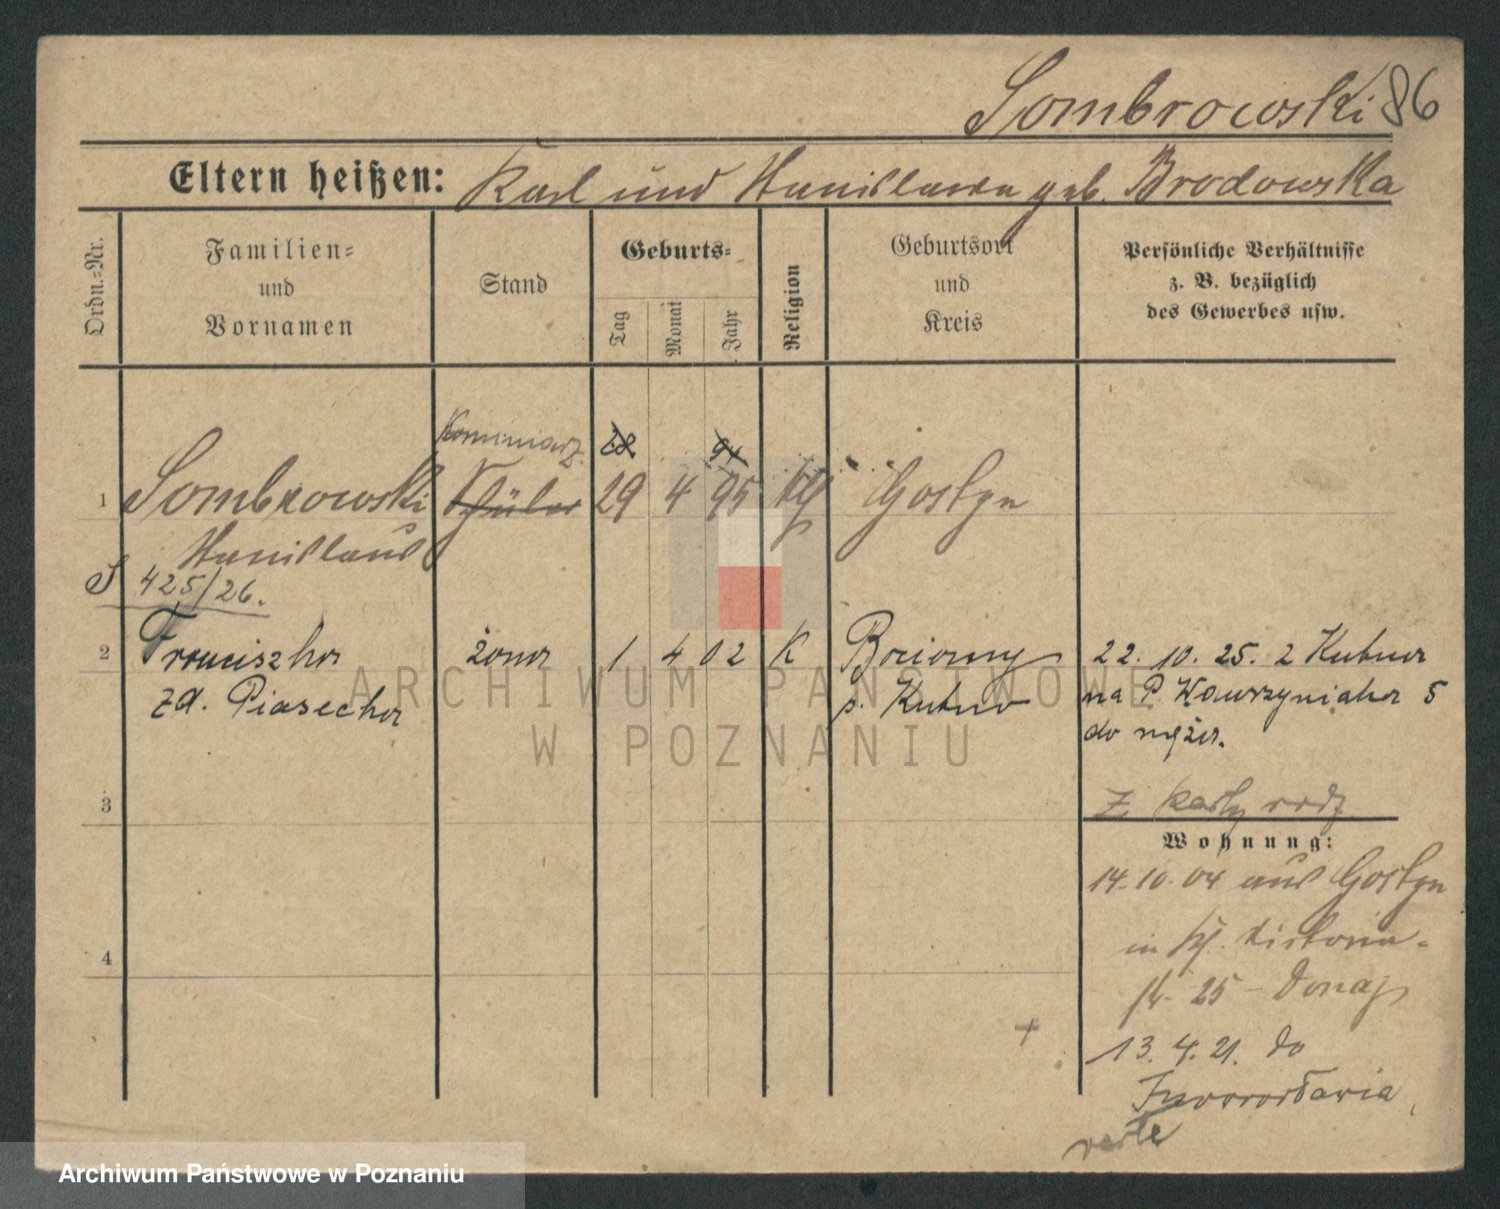 Dombrowski 86
Eltern heißen: Karl und Stanislawa geb. Brodowska
Ordn.-Nr.
Familien-
und
Vornamen
Stand
Geburts-
Tag
Monat
Jahr
Religion
Geburtsort
und
Kreis
Persönliche Verhältnisse
z. B. bezüglich
des Gewerbes usw.
Kominiarz 28 94
1 Dombrowski Schüler 29 4 95 kg Gostyn
Stanislaus
S 425/26.
2 Franciszka żona 1 4 02 K 22. 10. 25. z Kutna
zd. Piasecka p. Kutno na P. Wawrzyniaka 5
do męża.
3
z karty rodz
Wohnung:
14.10.04 aus Gostyn
in
4
25
13. 4. 21. do
Inowrocławia
verte
ARCHIWUM PAŃSTWOWE
W POZNANIU
Archiwum Państwowe w Poznaniu